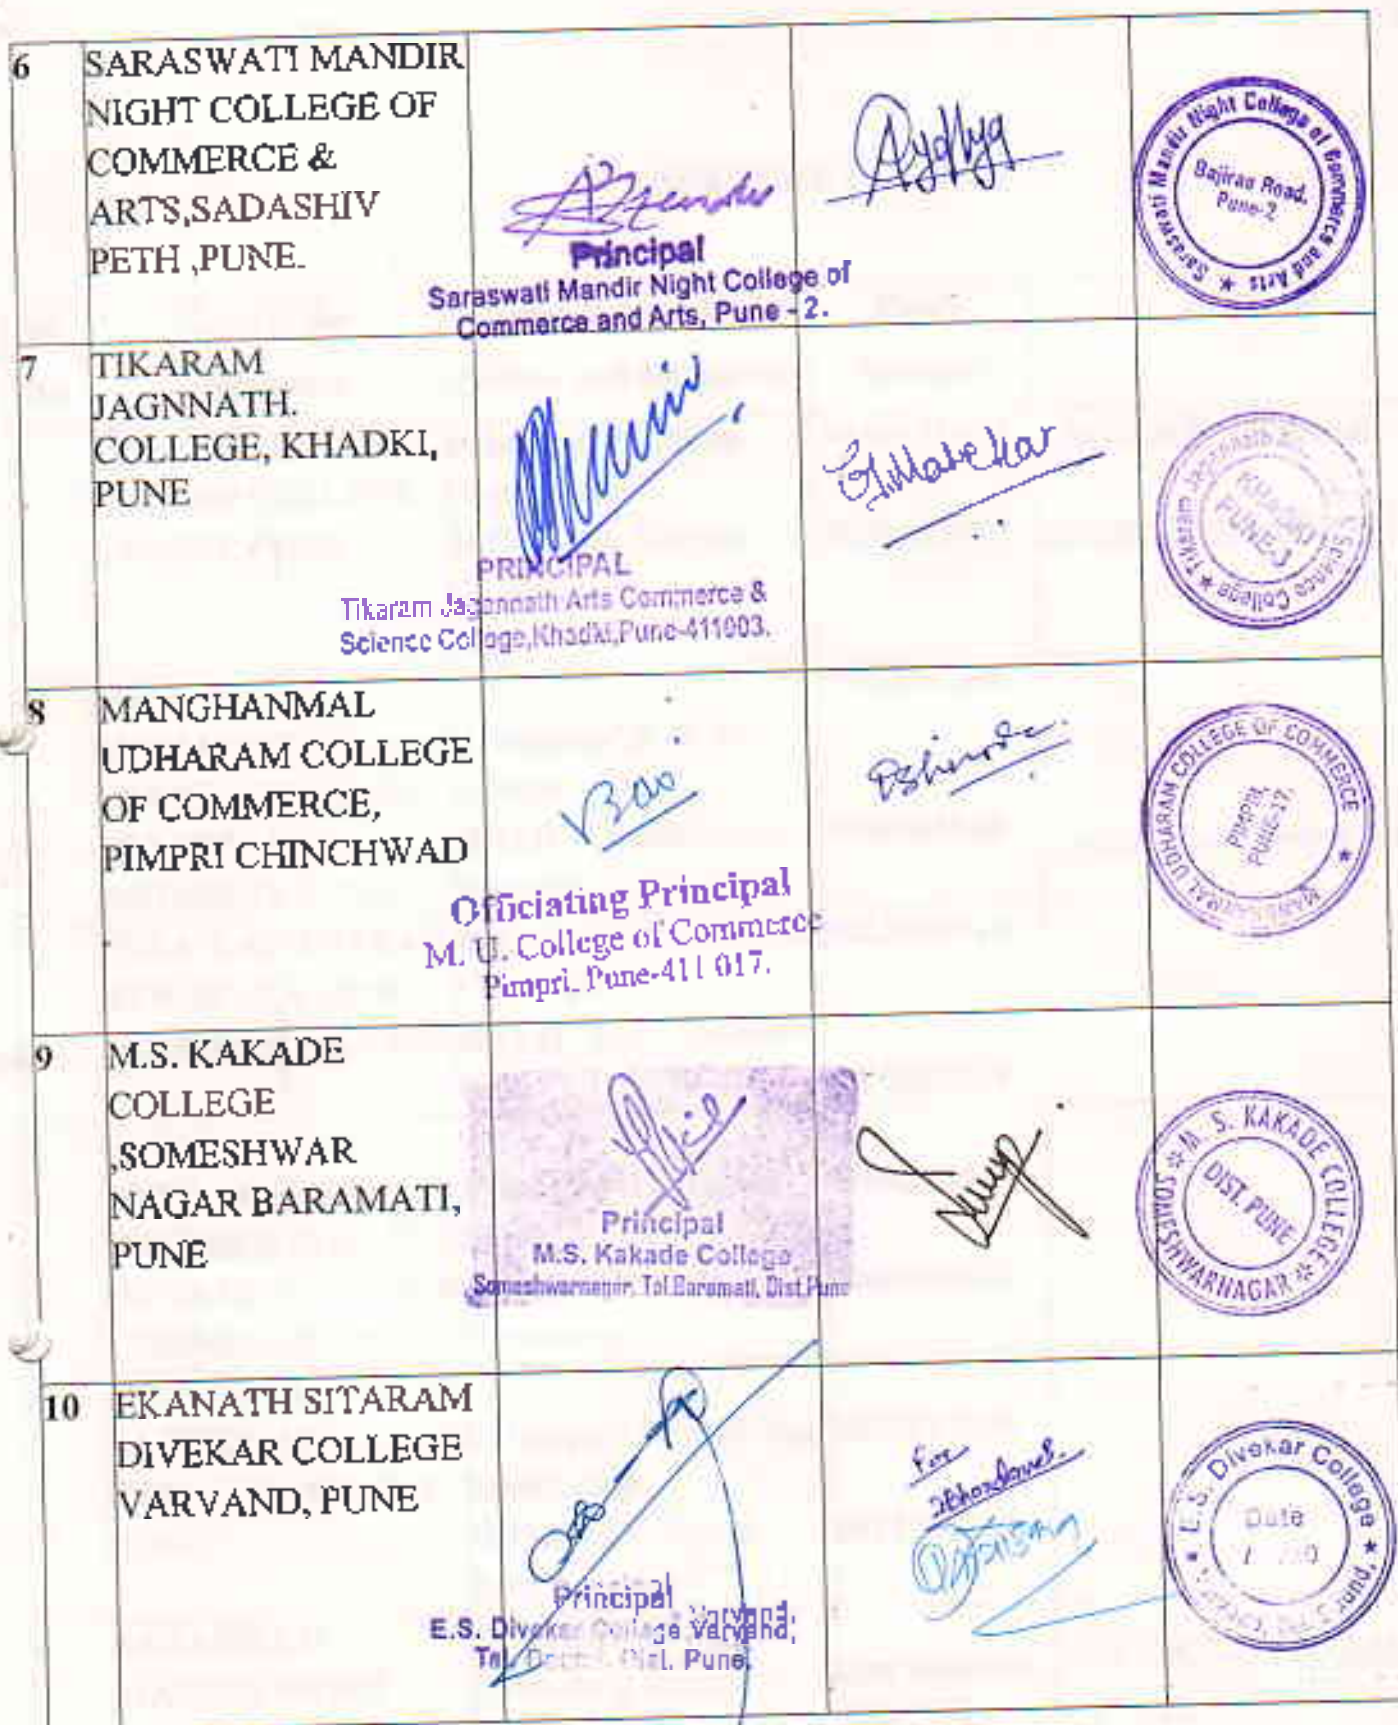 6
SARASWATI MANDIR
NIGHT COLLEGE OF
COMMERCE &
ARTS,SADASHIV
PETH ,PUNE.
Principal
Saraswati Mandir Night College of
Commerce and Arts, Pune - 2.
Saraswati Mandir Night College of Commerce and Arts ★
Bajirao Road,
Pune-2
7
TIKARAM
JAGNNATH.
COLLEGE, KHADKI,
PUNE
PRINCIPAL
Tikaram Jagannath Arts Commerce &
Science College,Khadki,Pune-411003.
★ Tikaram Jagannath Science College
KHADKI
PUNE-3
8
MANGHANMAL
UDHARAM COLLEGE
OF COMMERCE,
PIMPRI CHINCHWAD
Officiating Principal
M. U. College of Commerce
Pimpri, Pune-411 017.
MANGHANMAL UDHARAM COLLEGE OF COMMERCE ★
PIMPRI,
PUNE-17.
9
M.S. KAKADE
COLLEGE
,SOMESHWAR
NAGAR BARAMATI,
PUNE
Principal
M.S. Kakade College
Someshwarnagar, Tal.Baramati, Dist.Pune
M. S. KAKADE COLLEGE
SOMESHWARNAGAR
DIST. PUNE
10
EKANATH SITARAM
DIVEKAR COLLEGE
VARVAND, PUNE
For
Principal
E.S. Divekar College Varvand,
Tal. Dist. Pune.
E.S. Divekar College ★
Date